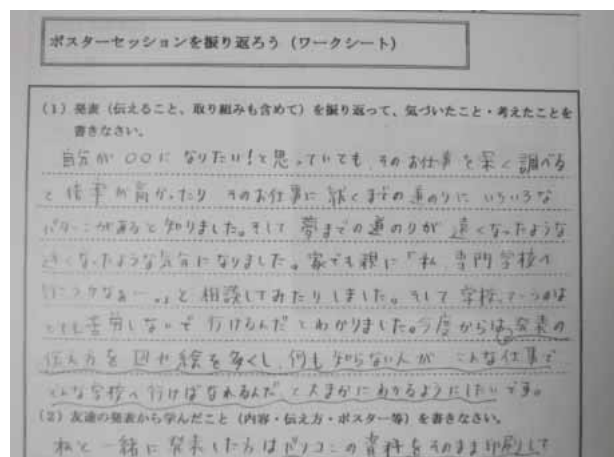 ポスターセッションを振り返ろう（ワークシート）
（１）発表（伝えること、取り組みも含めて）を振り返って、気づいたこと・考えたことを
書きなさい。
自分が○○になりたい！と思っていても、そのお仕事を深く調べる
と倍率が高かったり そのお仕事に就くまでの道のりに いろいろな
パターンがあると知りました。そして 夢までの道のりが 遠くなったような
近くなったような気分になりました。家でも親に「私、専門学校へ
行こうかなぁー。」と相談してみたりしました。そして 学校
苦労しないで 行けるんだ とわかりました。今度からは、発表の
伝え方を 図や絵を多くし、何も知らない人が こんな仕事で
こんな学校へ行けばなれるんだ、と大まかにわかるようにしたいです。
（２）友達の発表から学んだこと（内容・伝え方・ポスター等）を書きなさい。
私と一緒に発表した方はパソコンの資料をそのまま印刷して